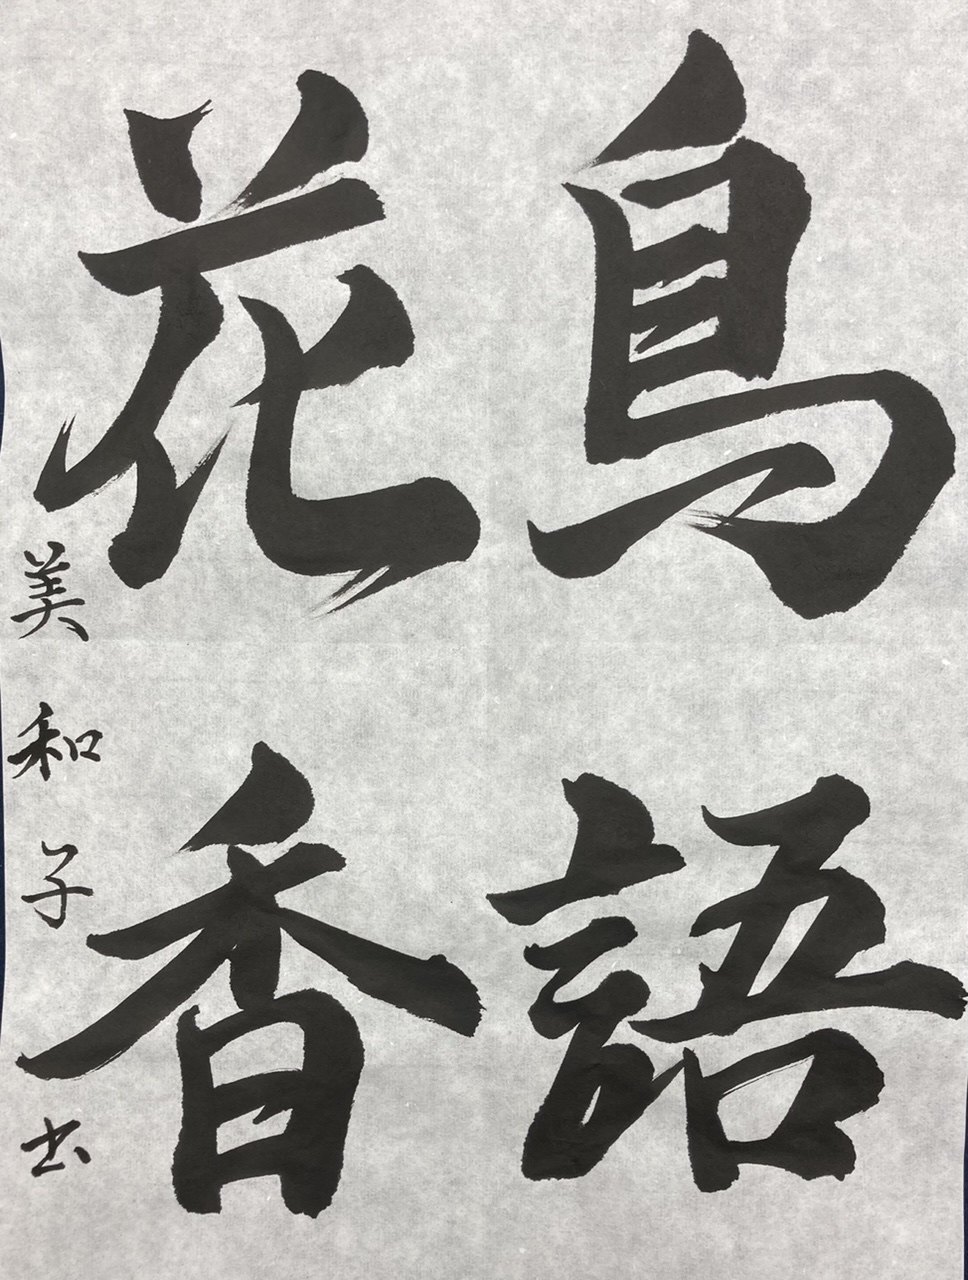 鳥語
花香
美和子书